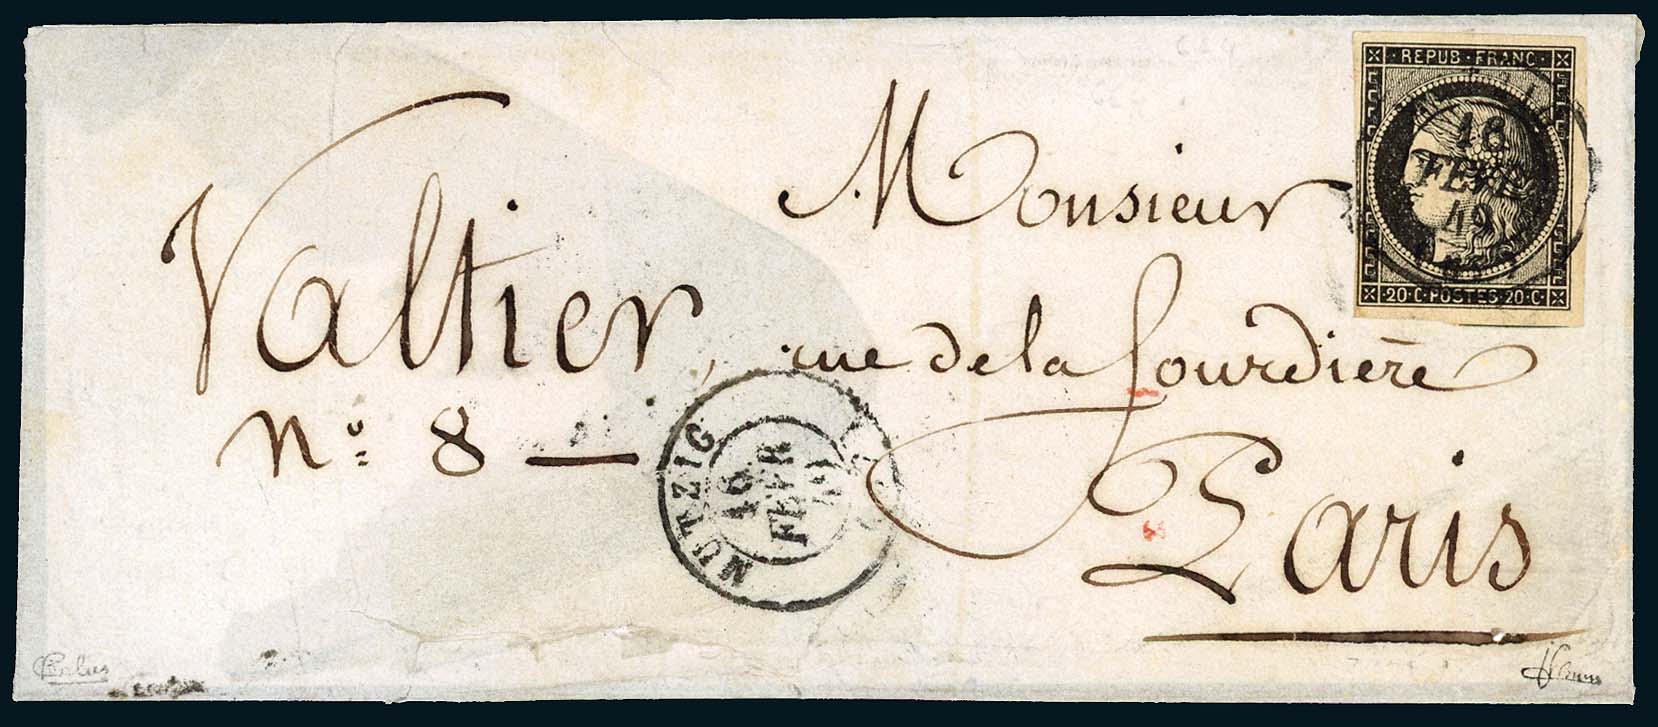 REPUB·FRANC·
16
FEVR
49
20·C·POSTES·20·C·
Monsieur
Valtier, rue de la Sourdière
N° 8 —
Paris
MUTZIG
16
FEVR
49